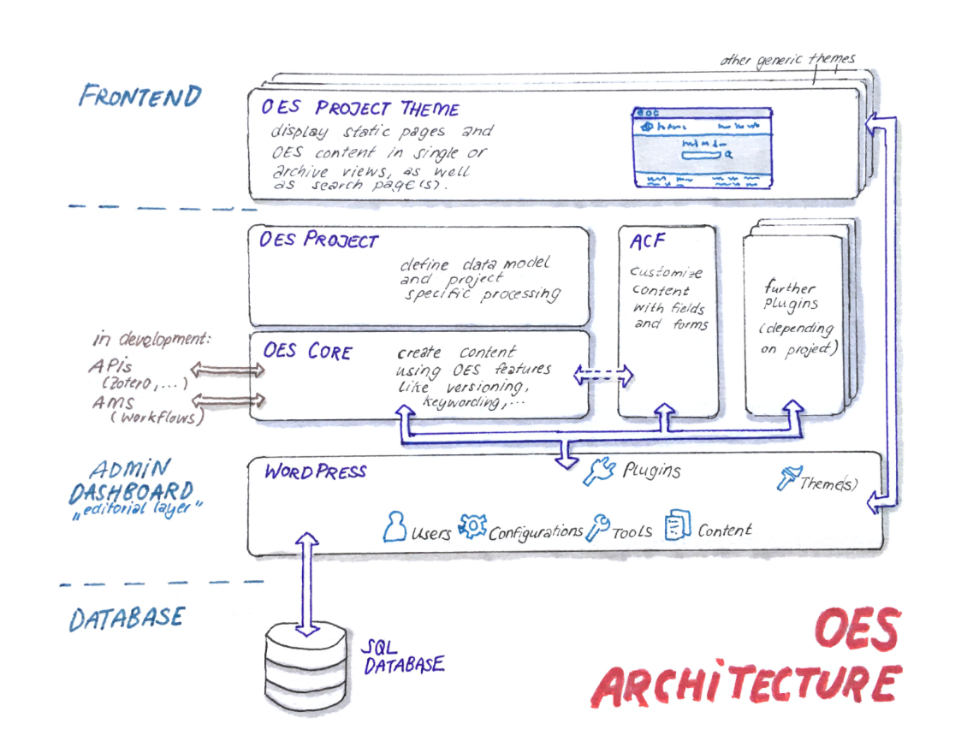 other generic themes
FRONTEND
OES PROJECT THEME
display static pages and
OES content in single or
archive views, as well
as search page(s).
OES PROJECT
define data model
and project
specific processing
ACF
customize
content
with fields
and forms
further
plugins
(depending
on project)
in development:
APIs
(Zotero,...)
AMS
(workflows)
OES CORE
create content
using OES features
like versioning,
keywording,...
ADMIN
DASHBOARD
„editorial layer"
WORDPRESS
Plugins
Theme(s)
Users
Configurations
Tools
Content
DATABASE
SQL
DATABASE
OES
ARCHITECTURE